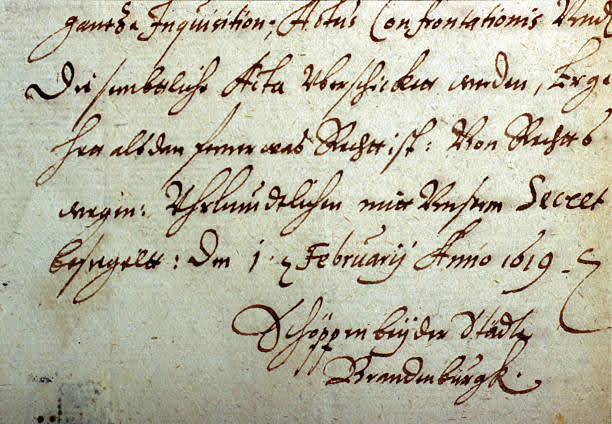 gantze Inquisition, Actus Confrontationis Vnndt
Die sembttliche Acta Vberschicktt werden, Erge
hett alsdan ferner was Recht ist: Von Rechts
wegen: Vhrkundtlichen mitt Vnserm Secret
besiegeltt: Den 1. February Anno 1619
Schöppen beyder Städte
Brandenburgk.